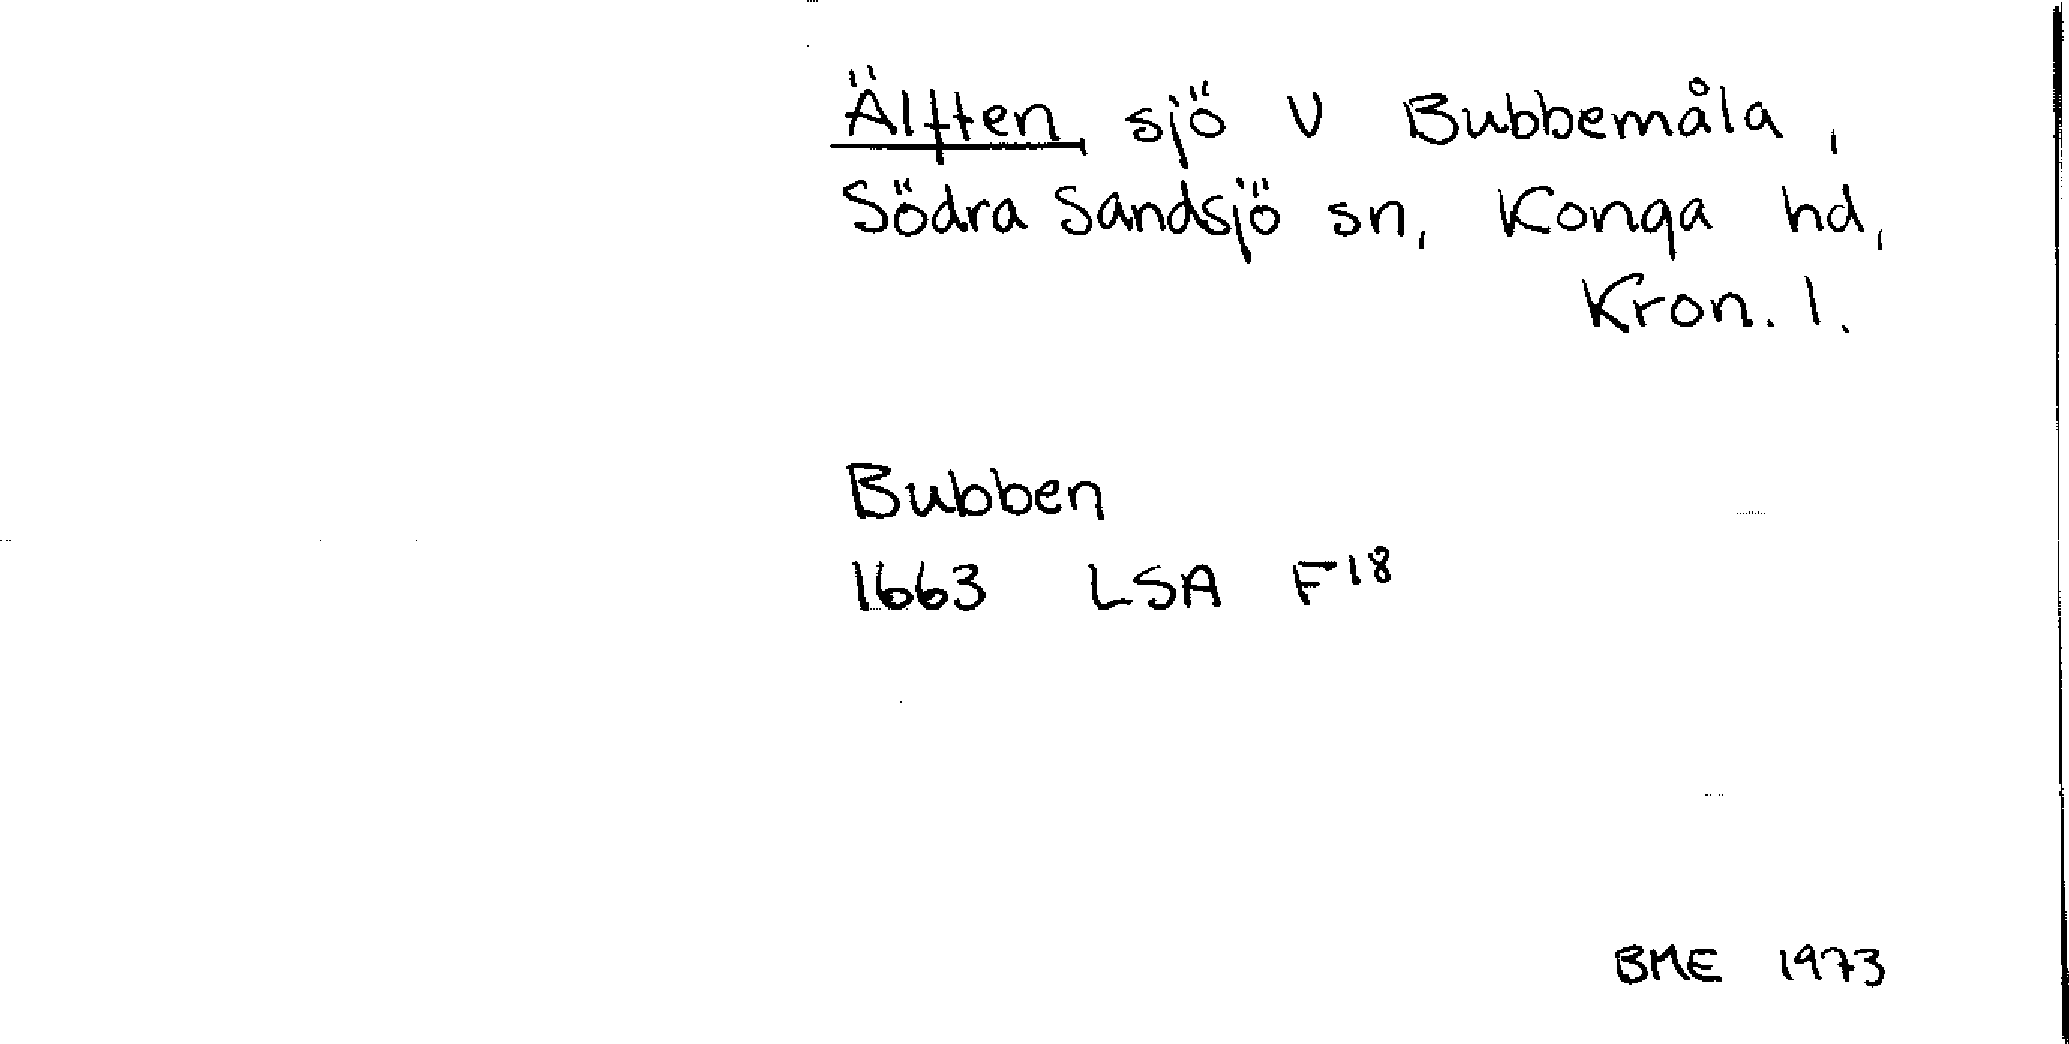 Älften sjö V Bubbemåla,
Södra Sandsjö sn, Konga hd,
Kron. l.
Bubben
1663 LSA F18
BME 1973